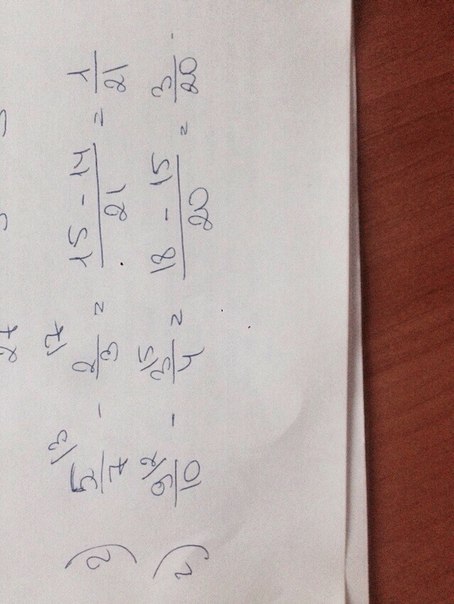 2) 5/7 |3 - 2/3 |7 = 15 - 14/21 = 1/21
г) 9/10 |2 - 3/4 |5 = 18 - 15/20 = 3/20